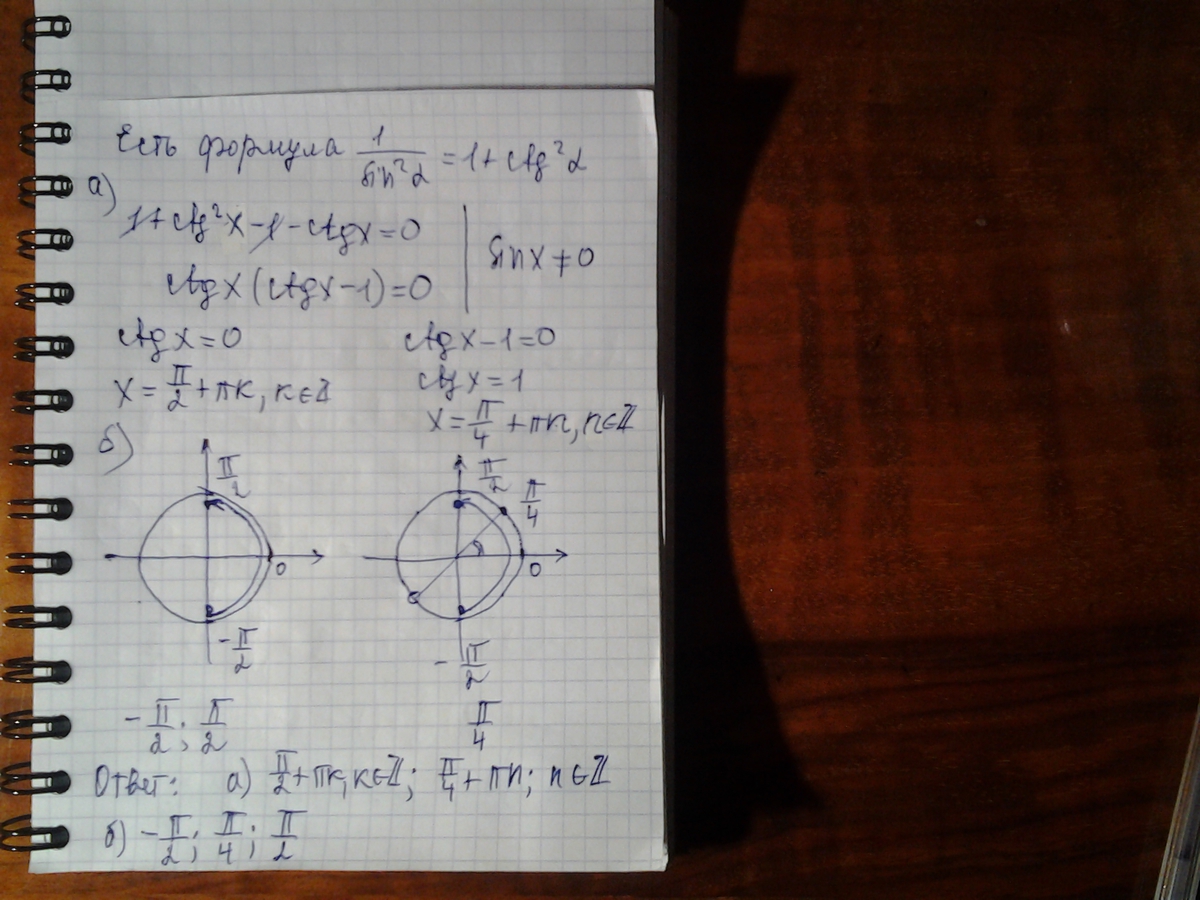 Есть формула 1/sin²α = 1 + ctg²α
а)
1 + ctg²x - 1 - ctgx = 0 | sinx ≠ 0
ctgx (ctgx - 1) = 0
ctgx = 0 ctgx - 1 = 0
x = π/2 + πk, k∈Z ctgx = 1
x = π/4 + πn, n∈Z
б)
π/2 π/2 π/4
0 0
-π/2 -π/2
-π/2; π/2 π/4
Ответ: а) π/2 + πk, k∈Z; π/4 + πn; n∈Z
б) -π/2; π/4; π/2